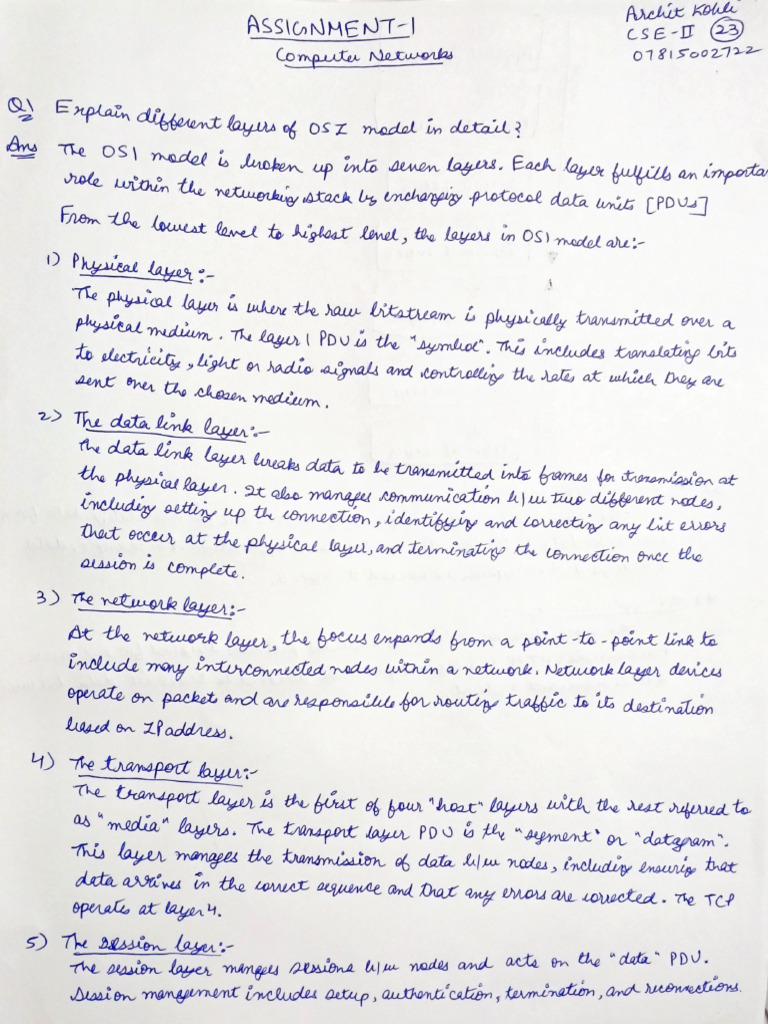 ASSIGNMENT-1
Computer Networks
Archit Kohli
CSE-II (23)
07815002722
Q1 Explain different layers of OSI model in detail?
Ans The OSI model is broken up into seven layers. Each layer fulfills an importa
role within the networking stack by exchanging protocol data units [PDUs]
From the lowest level to highest level, the layers in OSI model are:-
1) Physical layer:-
The physical layer is where the raw bitstream is physically transmitted over a
physical medium. The layer 1 PDU is the "symbol". This includes translating bits
to electricity, light or radio signals and controlling the rates at which they are
sent over the chosen medium.
2) The data link layer:-
The data link layer breaks data to be transmitted into frames for transmission at
the physical layer. It also manages communication b/w two different nodes,
including setting up the connection, identifying and correcting any bit errors
that occur at the physical layer, and terminating the connection once the
session is complete.
3) The network layer:-
At the network layer, the focus expands from a point-to-point link to
include many interconnected nodes within a network. Network layer devices
operate on packet and are responsible for routing traffic to its destination
based on IP address.
4) The transport layer:-
The transport layer is the first of four "host" layers with the rest referred to
as "media" layers. The transport layer PDU is the "segment" or "datagram".
This layer manages the transmission of data b/w nodes, including ensuring that
data arrives in the correct sequence and that any errors are corrected. The TCP
operates at layer 4.
5) The session layer:-
The session layer manges sessions b/w nodes and acts on the "data" PDU.
Session management includes setup, authentication, termination, and reconnections.